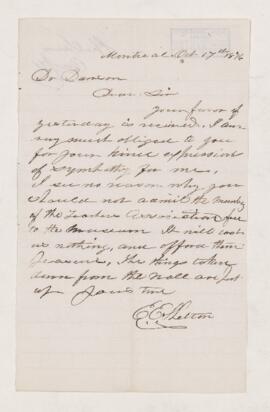 Montreal Oct 17th 1876
Dr Dawson
Dear Sir
Your favor of
yesterday is received. I am
very much obliged to you
for your kind expression
of sympathy for me.
I see no reason why you
should not admit the members
of the Teachers Association free
to the Museum It will cost
us nothing, and afford them
pleasure, The things taken
down from the wall are put
up Yours truly
E E Shelton